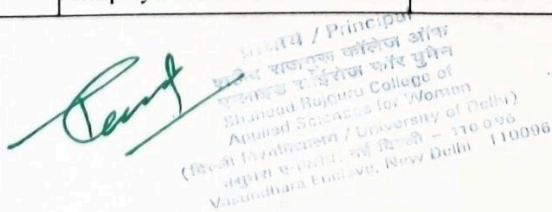 प्राचार्य / Principal
शहीद राजगुरु कॉलेज ऑफ
एप्लाइड साईंसेज फॉर वुमेन
Shaheed Rajguru College of
Applied Sciences for Women
(दिल्ली विश्वविद्यालय / University of Delhi)
वसुंधरा एन्क्लेव, नई दिल्ली - 110 096
Vasundhara Enclave, New Delhi 110096